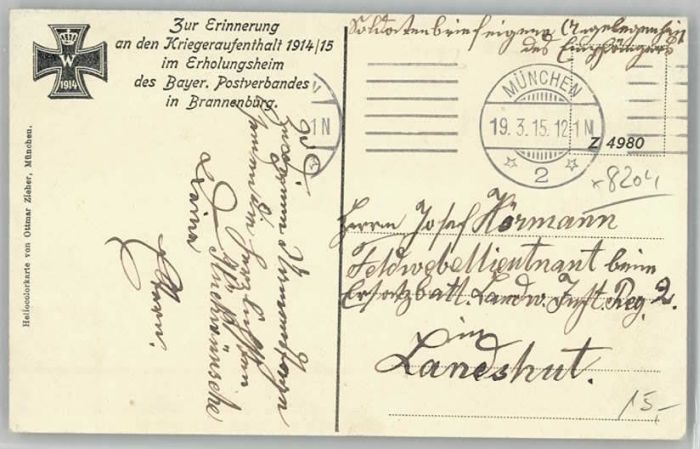 Zur Erinnerung
an den Kriegeraufenthalt 1914/15
im Erholungsheim
des Bayer. Postverbandes
in Brannenburg.
W
1914
Heliocolorkarte von Ottmar Zieher, München.
Soldatenbrief eigene Angelegenheit
des Empfängers
MÜNCHEN
19. 3. 15. 12-1 N
2
1 N
Z 4980
x8204
Herrn Josef Hörmann
Feldwebellieutnant beim
Ersatzbatt. Landw. Inft. Reg. 2.
in
Landshut.
15,-
Zu
Namensfeste
herzlichsten
Glückwünsche